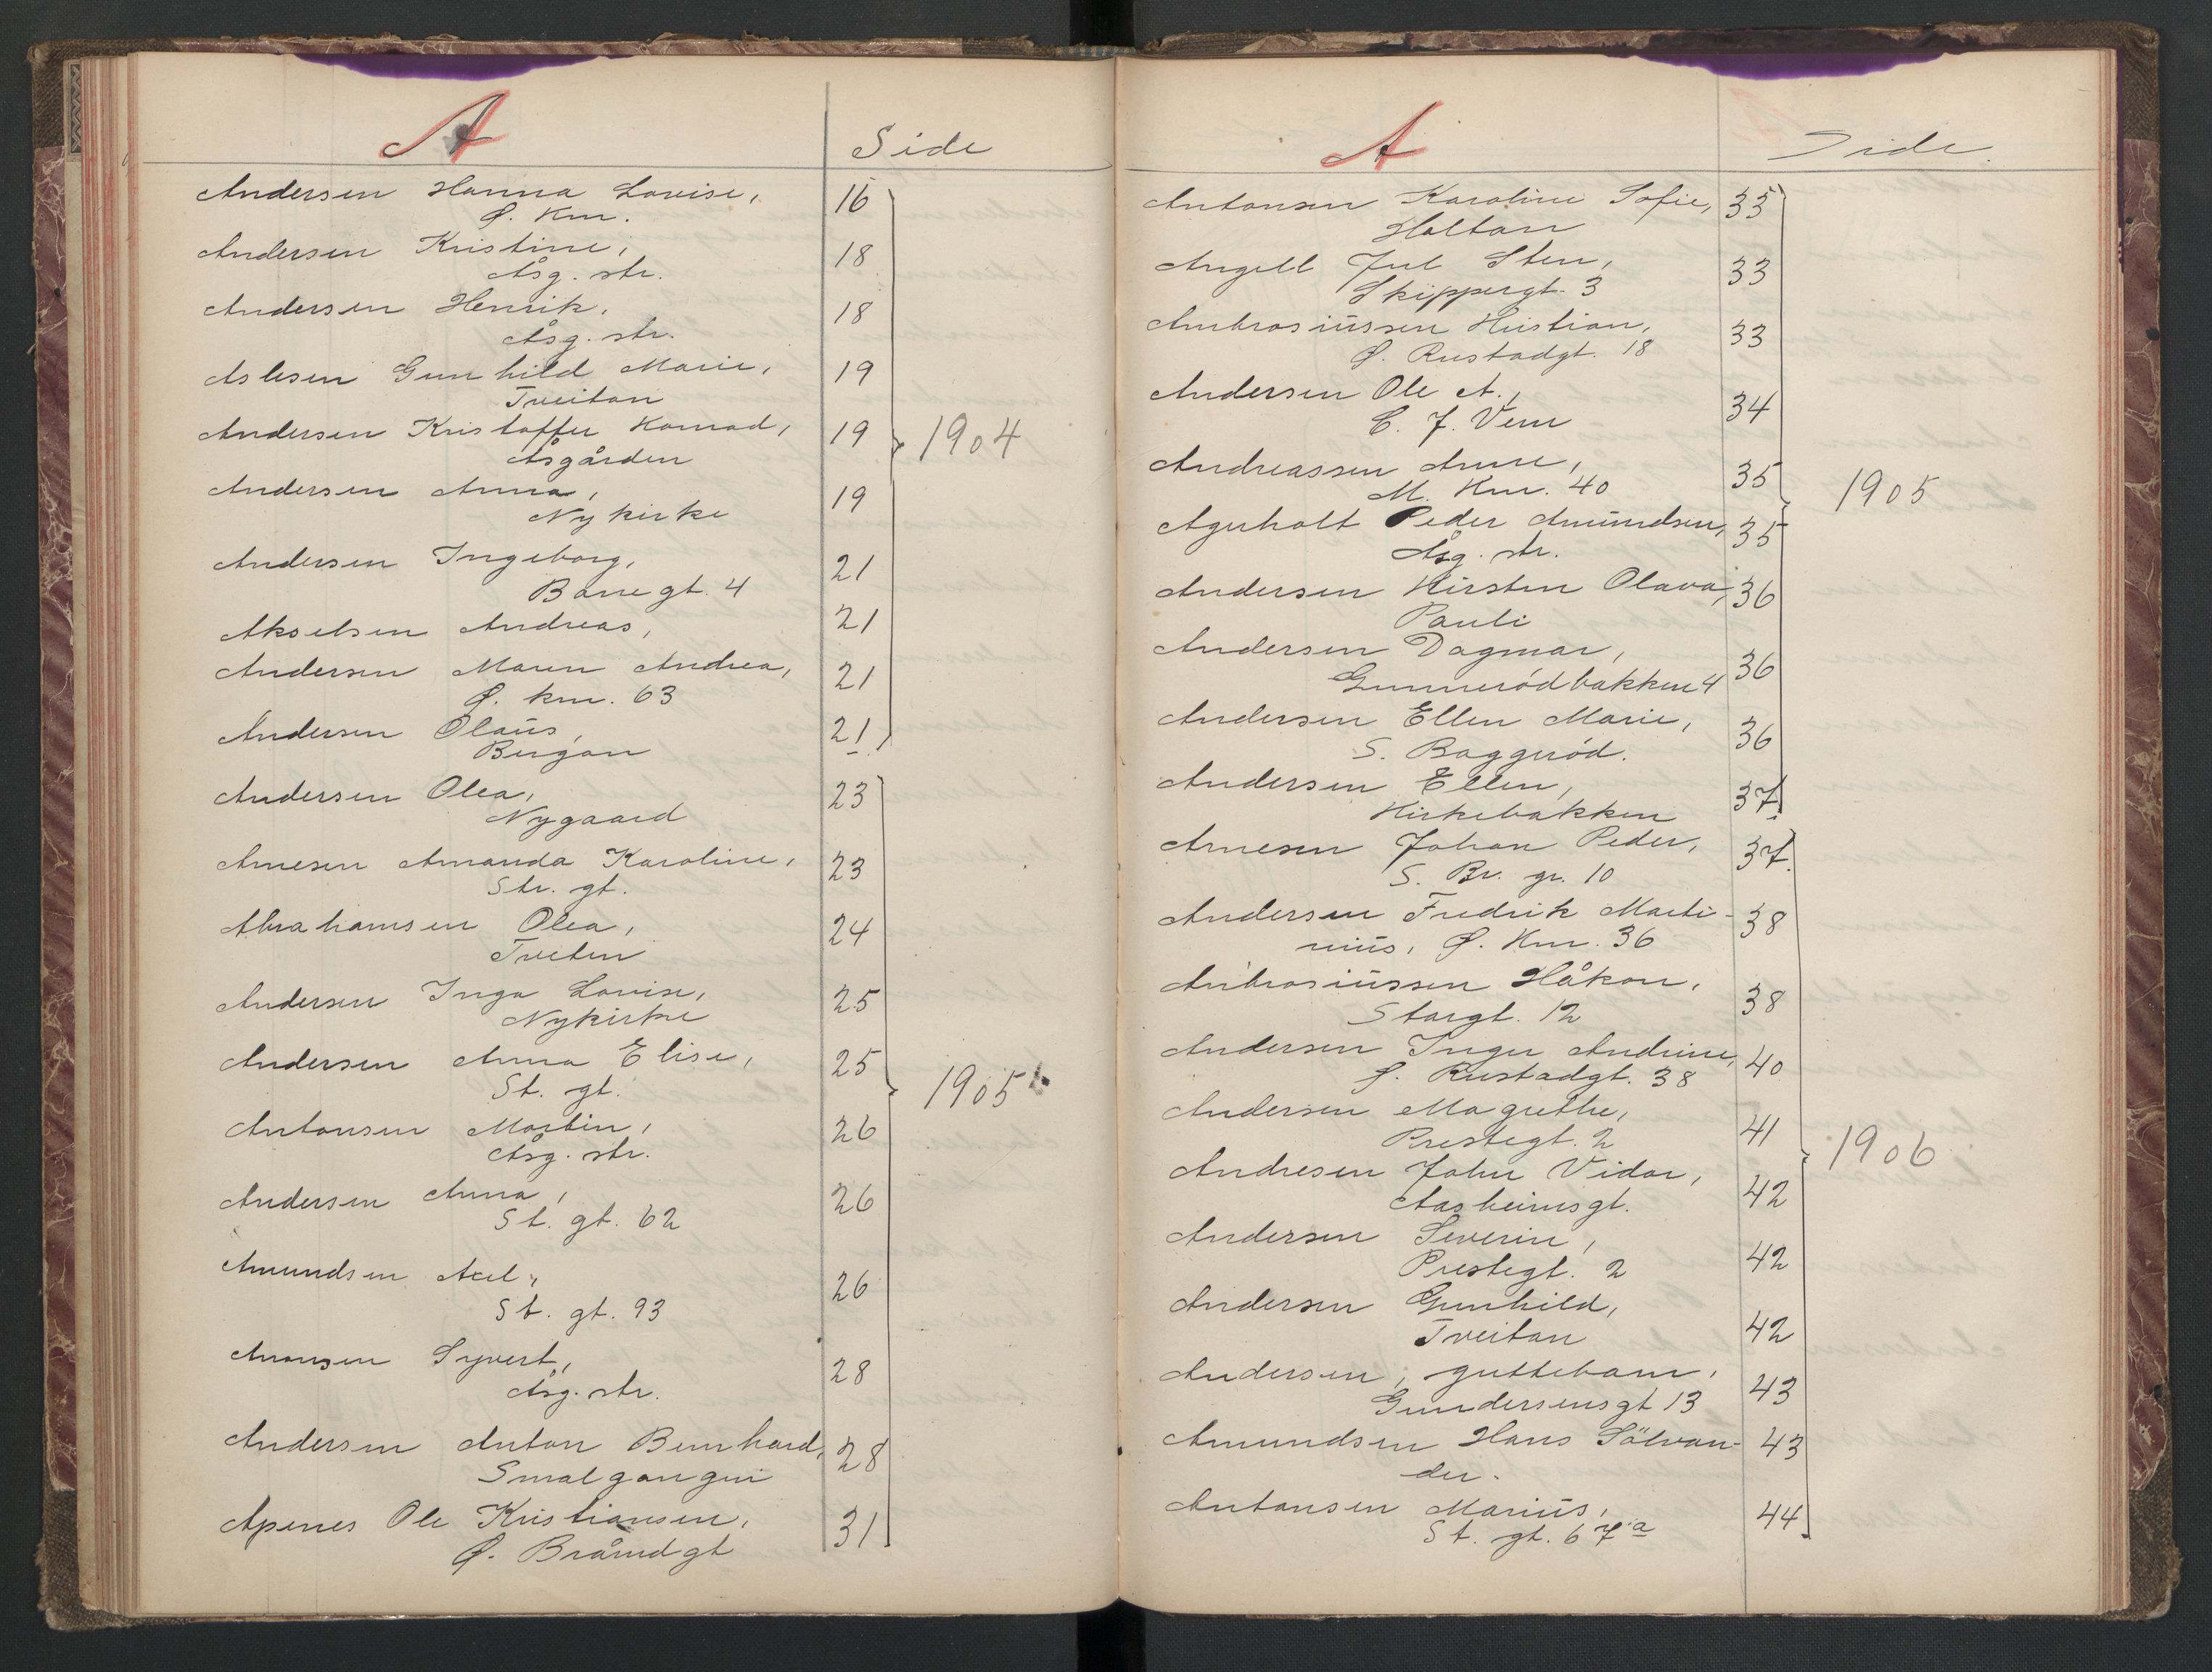 A
Side
Andersen Hanna Lovise, 16
Ø. Km.
Andersen Kristine, 18
Åsg. str.
Andersen Henrik, 18
Åsg. str.
Aslesen Gunhild Marie, 19
Tveitan
Andersen Kristoffer Konrad, 19
Åsgården
1904
Andersen Anna, 19
Nykirke
Andersen Ingeborg, 21
Banegt. 4
Akselsen Andreas, 21
Andersen Maren Andrea, 21
Ø. km. 63
Andersen Olaus, 21
Bergan
Andersen Olea, 23
Nygaard
Arnesen Amanda Karoline, 23
Str. gt.
Abrahamsen Olea, 24
Tveten
Andersen Inga Lovise, 25
Nykirke
Andersen Anna Elise, 25
St. gt.
1905
Antonsen Martin, 26
Åsg. str.
Andersen Anna, 26
St. gt. 62
Amundsen Axel, 26
St. gt. 93
Aronsen Syvert, 28
Åsg. str.
Andersen Anton Bernhard, 28
Smalgangen
Apenes Ole Kristiansen, 31
Ø. Bråndgt
A
Side
Antonsen Karoline Sofie, 33
Holtan
Angell Jul Sten, 33
Skippergt. 3
Ambrosiussen Kristian, 33
Ø. Rustadgt. 18
Andersen Ole A., 34
C. F. Vem
Andreassen Anne, 35
M. Km. 40
1905
Agerholt Peder Amundsen, 35
Åsg. str.
Andersen Kirsten Olava, 36
Pauli
Andersen Dagmar, 36
Gunnerødbakken 4
Andersen Ellen Marie, 36
S. Baggerød.
Andersen Ellen, 37
Kirkebakken
Arnesen Johan Peder, 37
S. Br. gr. 10
Andersen Fredrik Marti- 38
nius, Ø. Km. 36
Ambrosiussen Håkon, 38
Storgt. 12
Andersen Inger Andrine, 40
Ø. Rustadgt. 38
Andersen Magrethe, 41
Prestegt. 2
1906
Andresen John Vidar, 42
Aasheimsgt.
Andersen Severin, 42
Prestegt. 2
Andersen Gunhild, 42
Tveitan
Andersen, guttebarn, 43
Gundersensgt 13
Amundsen Hans Sölvan- 43
der.
Antonsen Marius, 44
St. gt. 67a